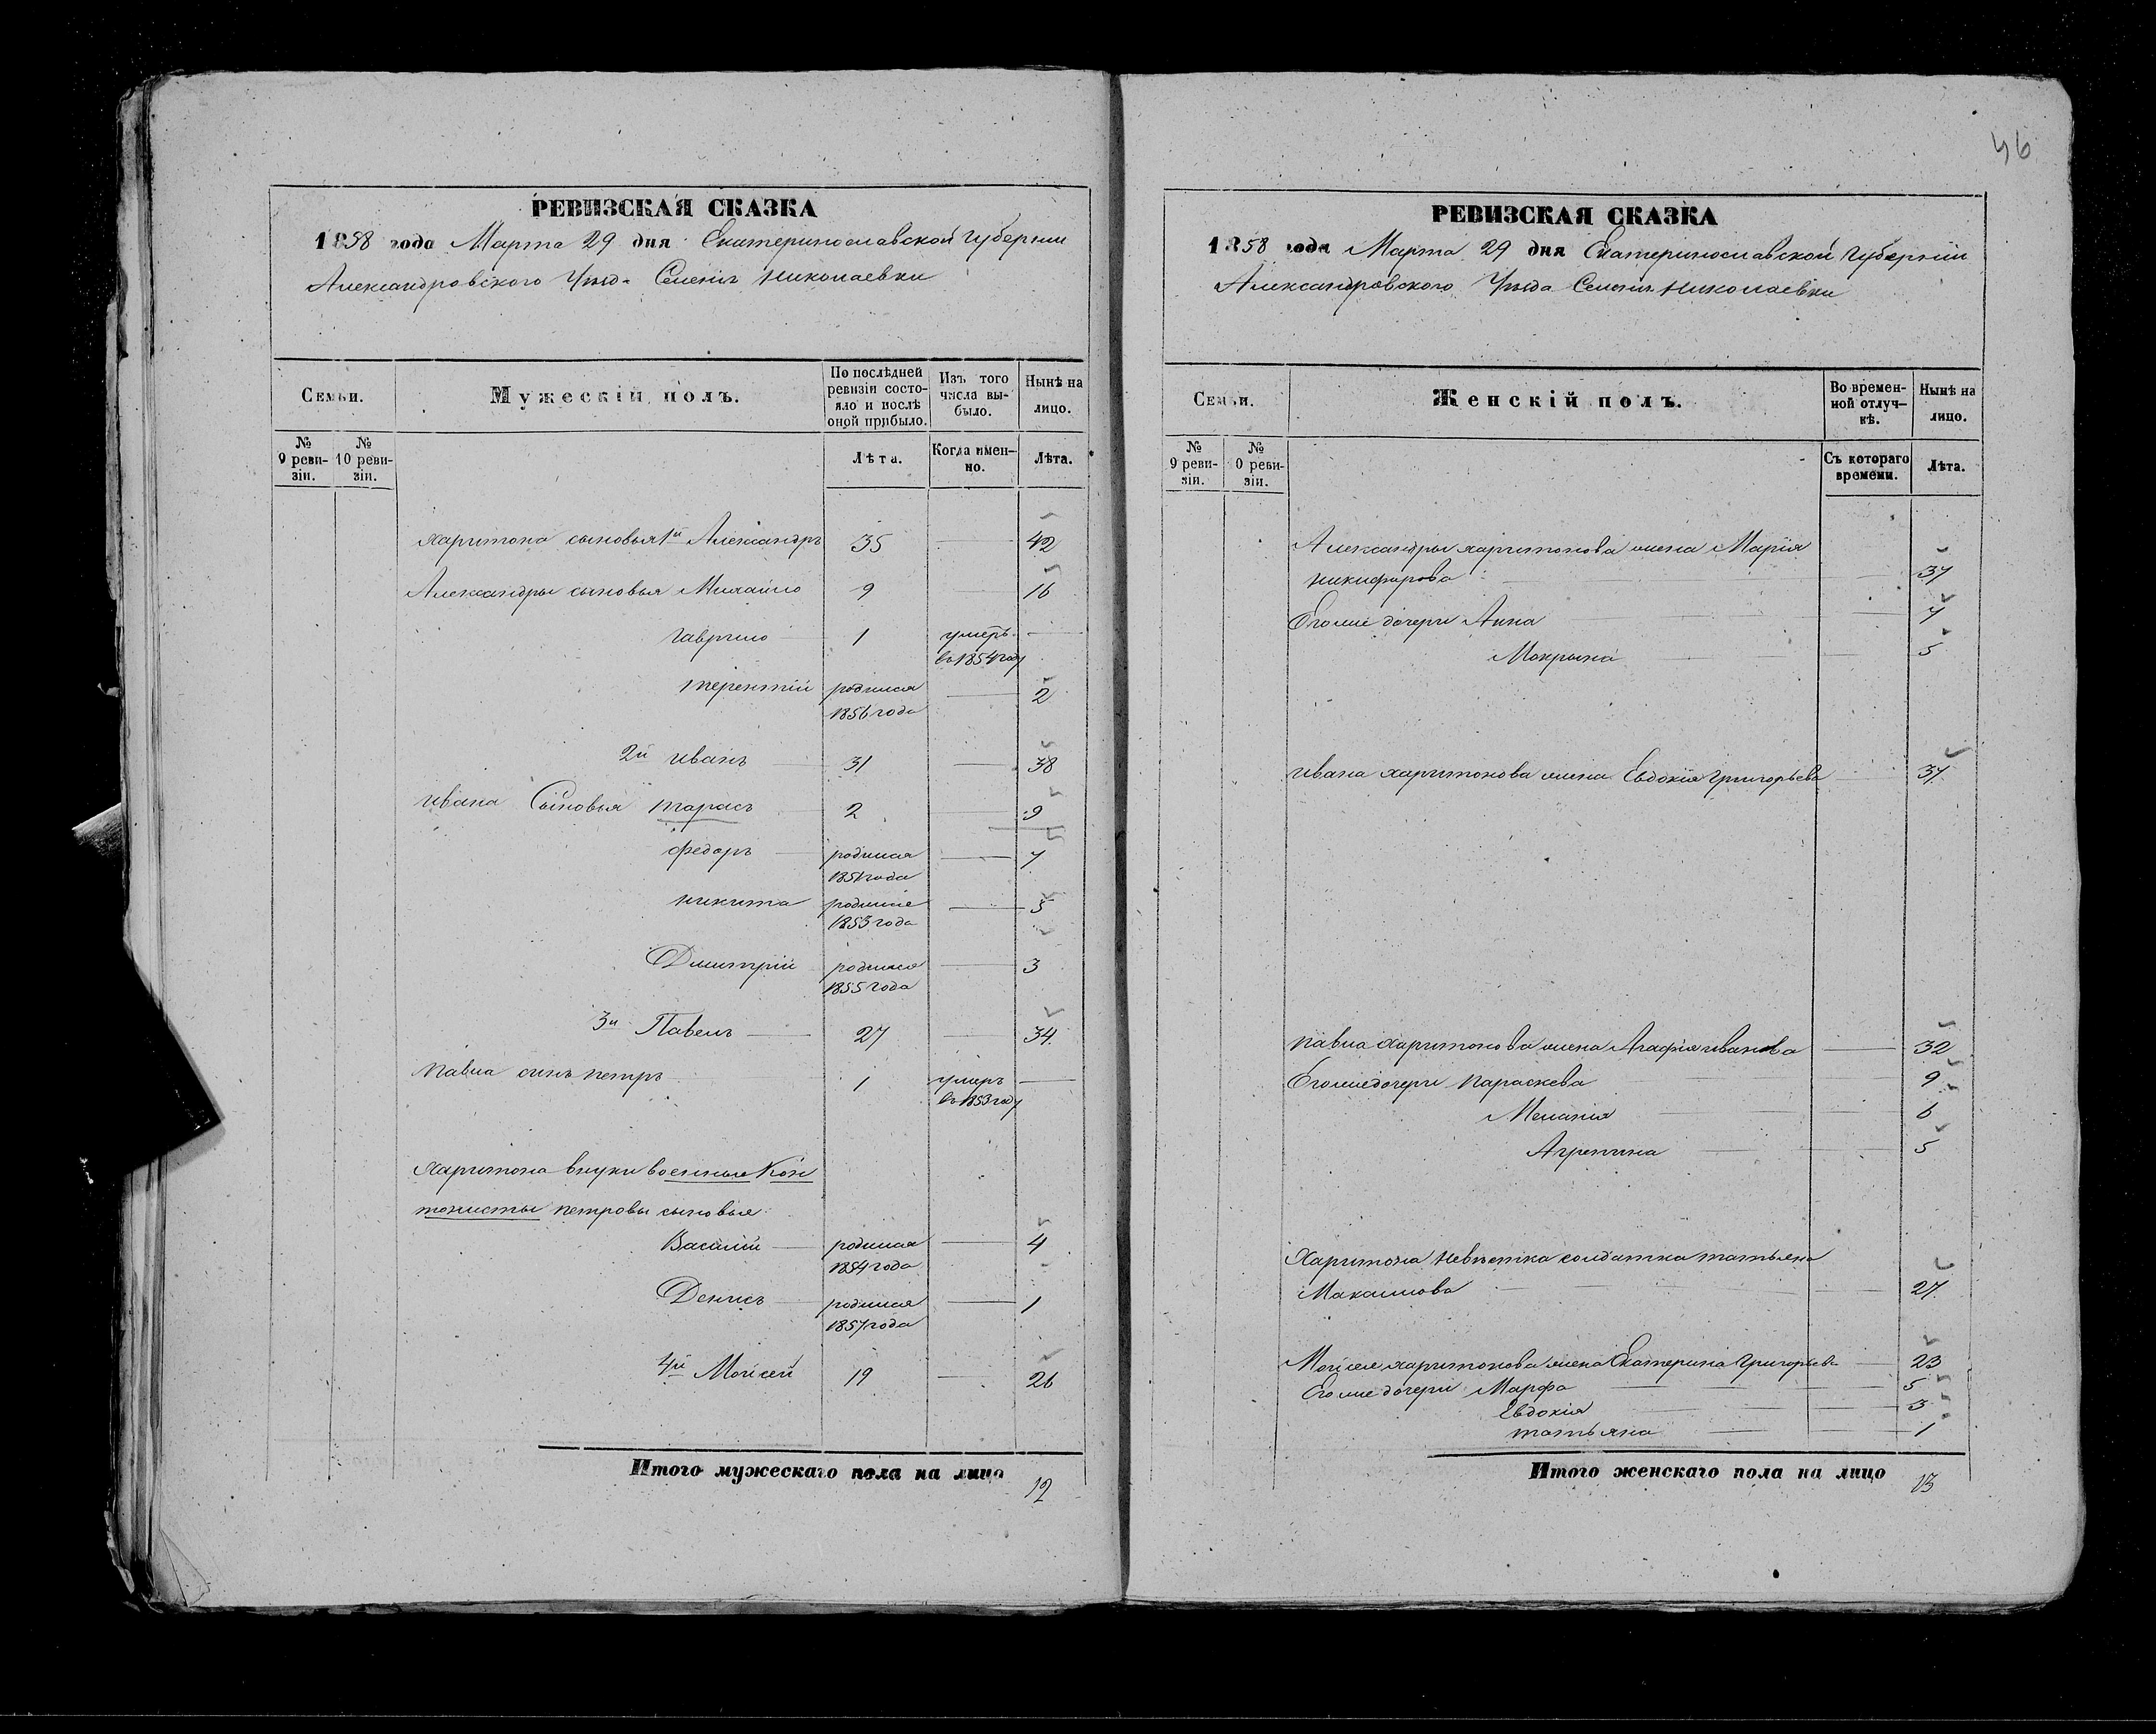 46
РЕВИЗСКАЯ СКАЗКА
1858 года Марта 29 дня Екатеринославской Губернии
Александровского Уезда Селения Николаевки
Семьи.
Мужескій полъ.
По послѣдней ревизіи состояло и послѣ оной прибыло.
Изъ того числа выбыло.
Нынѣ на лицо.
№ 9 ревизіи.
№ 10 ревизіи.
Лѣта.
Когда именно.
Лѣта.
Харитона сыновья 1й Александръ 35 — 42
Александры сыновья Михайло 9 16
Гаврило 1 умеръ —
въ 1854 году
Терентій родился — 2
1856 года
2й Иванъ 31 — 38
Ивана Сыновья Тарасъ 2 — 9
Федоръ родился — 7
1851 года
Никита родился — 5
1853 года
Дмитрій родился — 3
1855 года
3й Павелъ — 27 — 34
Павла сынъ Петръ 1 умеръ —
въ 1853 году
Харитона внуки военные Кон
тонисты Петровы сыновья
Василій — родился — 4
1854 года
Денисъ — родился — 1
1857 года
4й Мойсей 19 — 26
Итого мужескаго пола на лицо 12
РЕВИЗСКАЯ СКАЗКА
1858 года Марта 29 дня Екатеринославской Губерніи
Александровского Уезда Селения Николаевки
Семьи.
Женскій полъ.
Во временной отлучкѣ.
Нынѣ на лицо.
№ 9 ревизіи.
№ 0 ревизіи.
Съ котораго времени.
Лѣта.
Александры Харитонова жена Марія
Никифорова — 37
Его же дочери Анна — 7
Мокрына — 5
Ивана Харитонова жена Евдокія Григорьева — 37
Павла Харитонова жена Агафія Иванова — 32
Его же дочери Параскева — 9
Меланія — 6
Агрепина — 5
Харитона Невѣстка солдатка Татьяна
Макаимова — 27
Мойсея Харитонова жена Екатерина Григорьева — 23
Его же дочери Марфа — 5
Евдокія — 3
Татьяна — 1
Итого женскаго пола на лицо 13